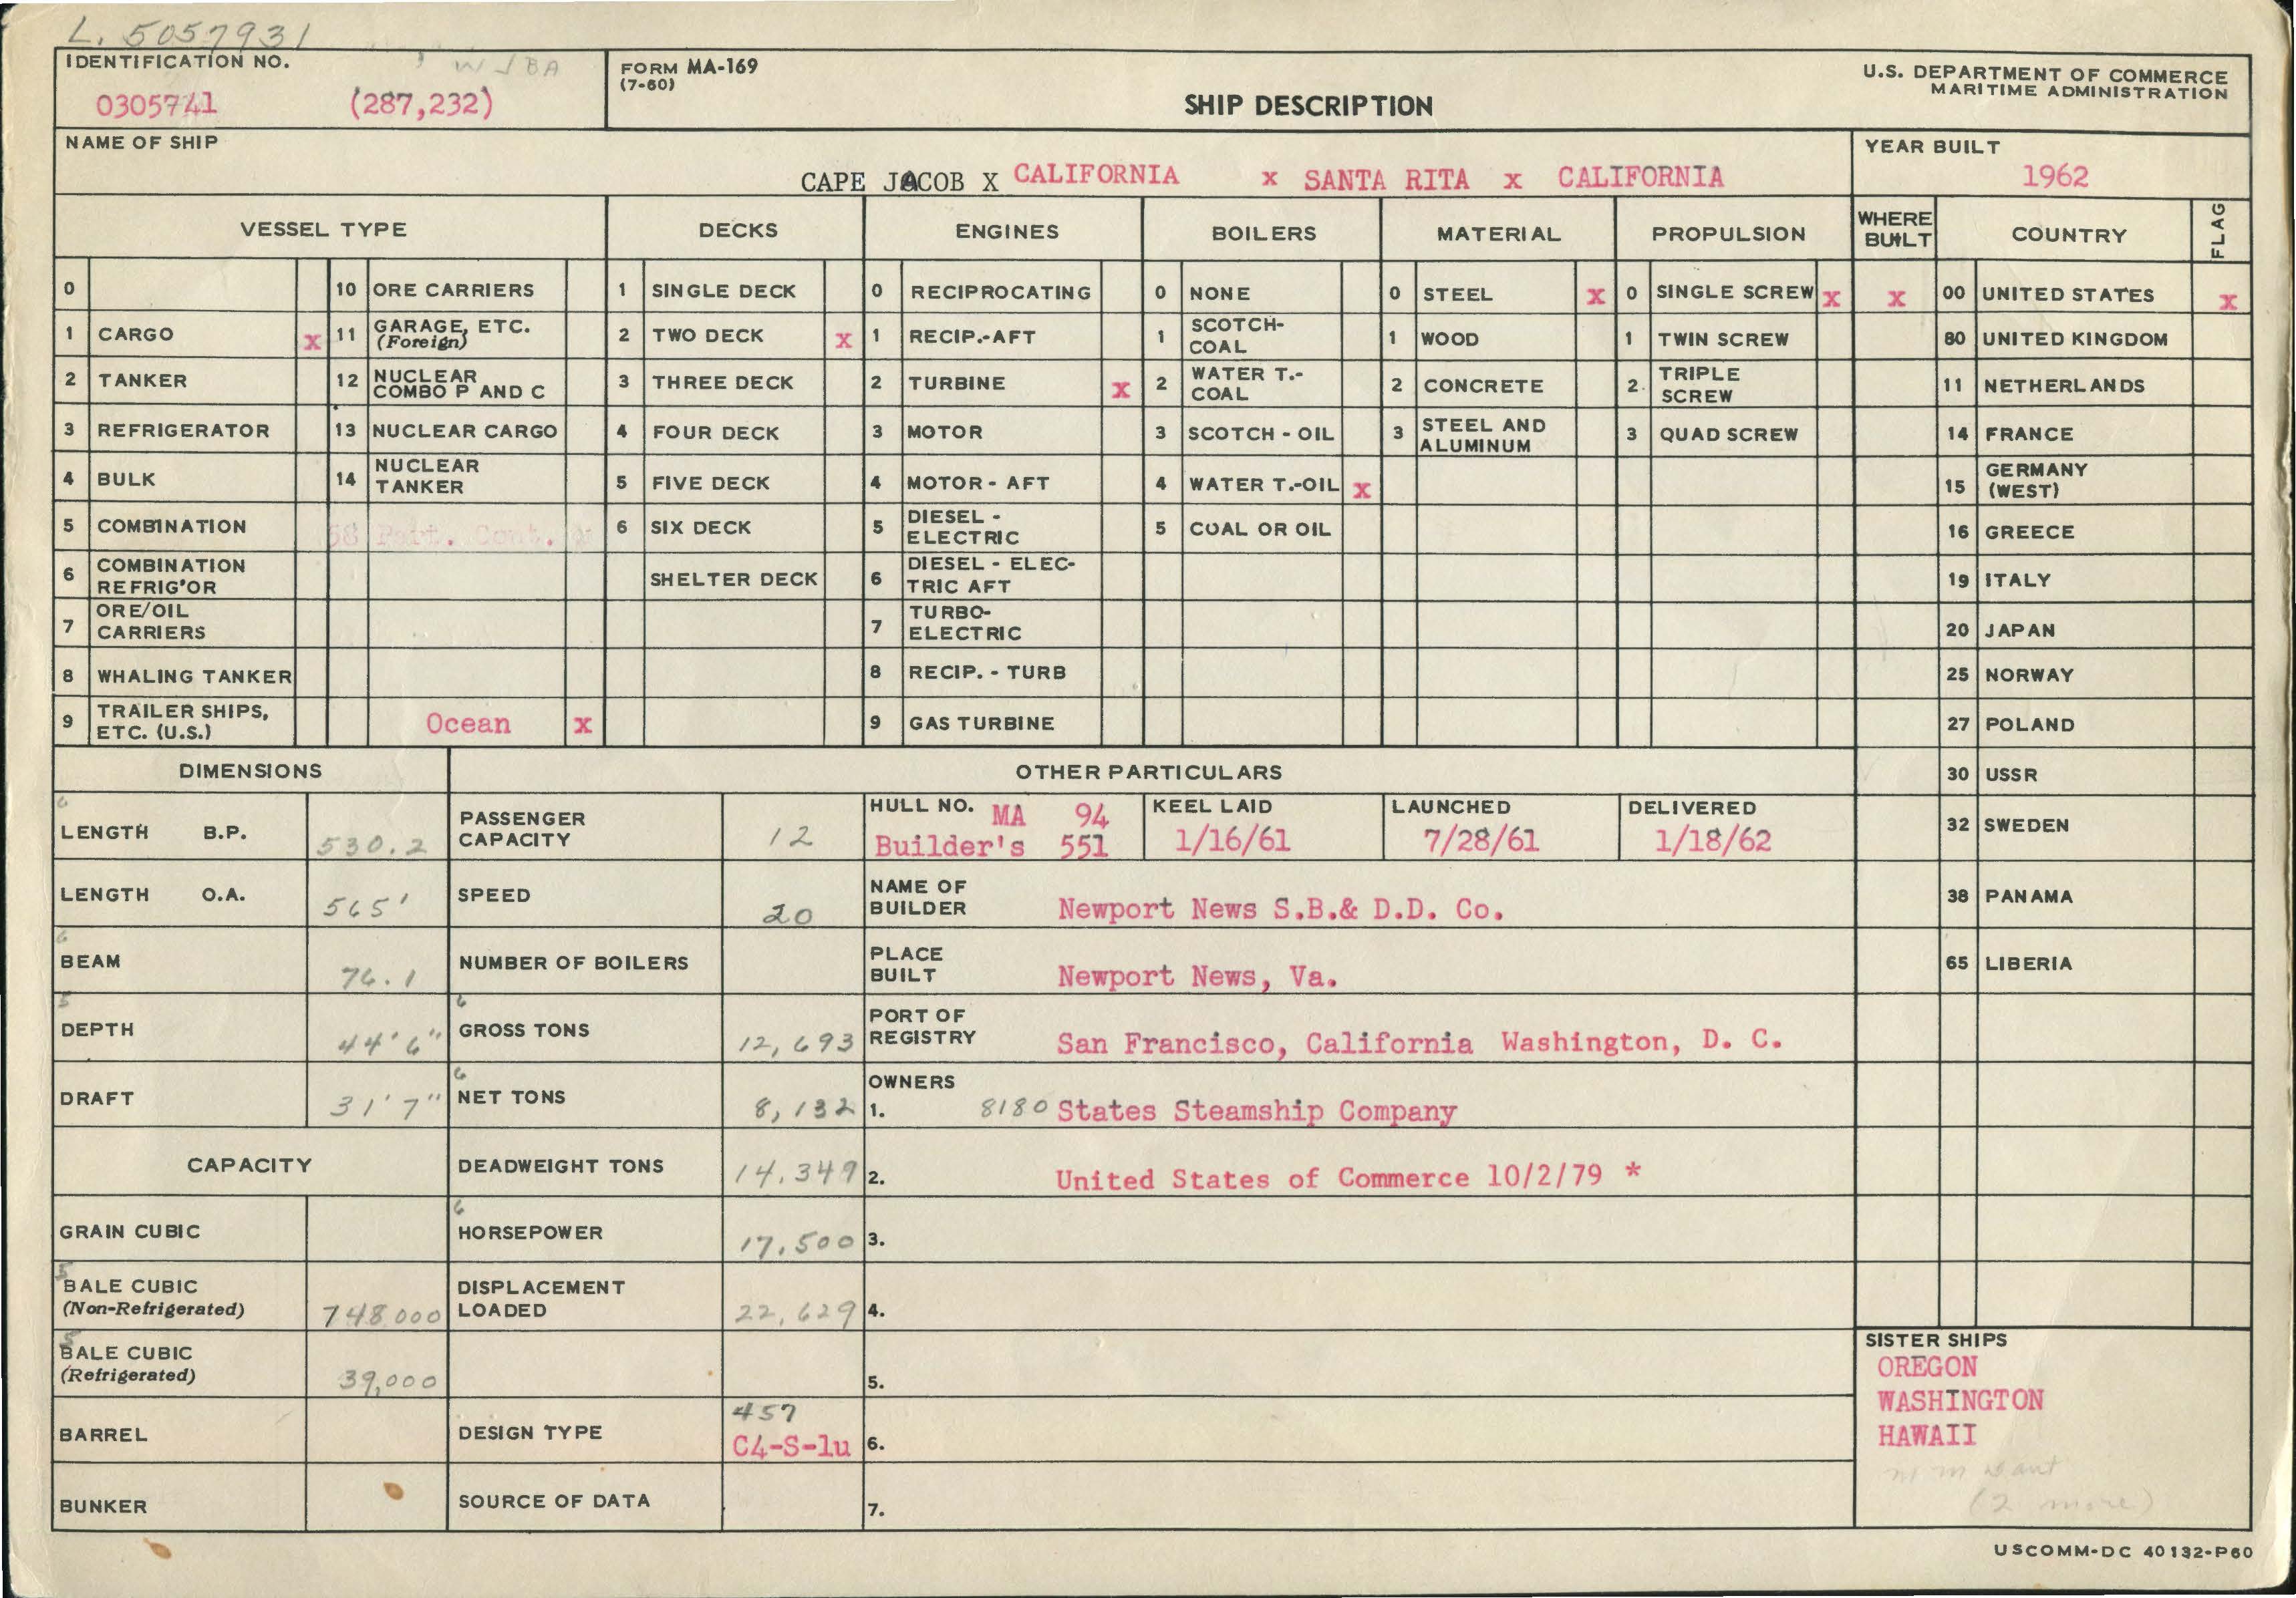 L. 5057931
IDENTIFICATION NO.
WJBA
0305741 (287,232)
FORM MA-169
(7-60)
SHIP DESCRIPTION
U.S. DEPARTMENT OF COMMERCE
MARITIME ADMINISTRATION
NAME OF SHIP
CAPE JACOB X CALIFORNIA x SANTA RITA x CALIFORNIA
YEAR BUILT
1962
VESSEL TYPE DECKS ENGINES BOILERS MATERIAL PROPULSION WHERE BUILT COUNTRY FLAG
0 10 ORE CARRIERS 1 SINGLE DECK 0 RECIPROCATING 0 NONE 0 STEEL x 0 SINGLE SCREW x x 00 UNITED STATES x
1 CARGO x 11 GARAGE, ETC. (Foreign) 2 TWO DECK x 1 RECIP.-AFT 1 SCOTCH-COAL 1 WOOD 1 TWIN SCREW 80 UNITED KINGDOM
2 TANKER 12 NUCLEAR COMBO P AND C 3 THREE DECK 2 TURBINE x 2 WATER T.-COAL 2 CONCRETE 2 TRIPLE SCREW 11 NETHERLANDS
3 REFRIGERATOR 13 NUCLEAR CARGO 4 FOUR DECK 3 MOTOR 3 SCOTCH - OIL 3 STEEL AND ALUMINUM 3 QUAD SCREW 14 FRANCE
4 BULK 14 NUCLEAR TANKER 5 FIVE DECK 4 MOTOR - AFT 4 WATER T.-OIL x 15 GERMANY (WEST)
5 COMBINATION 58 Part. Cont. 6 SIX DECK 5 DIESEL - ELECTRIC 5 COAL OR OIL 16 GREECE
6 COMBINATION REFRIG'OR SHELTER DECK 6 DIESEL - ELECTRIC AFT 19 ITALY
7 ORE/OIL CARRIERS 7 TURBO-ELECTRIC 20 JAPAN
8 WHALING TANKER 8 RECIP. - TURB 25 NORWAY
9 TRAILER SHIPS, ETC. (U.S.) Ocean x 9 GAS TURBINE 27 POLAND
DIMENSIONS OTHER PARTICULARS 30 USSR
LENGTH B.P. 530.2 PASSENGER CAPACITY 12
HULL NO. MA 94
Builder's 551
KEEL LAID
1/16/61
LAUNCHED
7/28/61
DELIVERED
1/18/62
32 SWEDEN
LENGTH O.A. 565' SPEED 20 NAME OF BUILDER Newport News S.B.& D.D. Co. 38 PANAMA
BEAM 76.1 NUMBER OF BOILERS PLACE BUILT Newport News, Va. 65 LIBERIA
DEPTH 44'6" GROSS TONS 12,693 PORT OF REGISTRY San Francisco, California Washington, D. C.
OWNERS
DRAFT 31'7" NET TONS 8,132 1. 8180 States Steamship Company
CAPACITY DEADWEIGHT TONS 14,349 2. United States of Commerce 10/2/79 *
GRAIN CUBIC HORSEPOWER 17,500 3.
BALE CUBIC (Non-Refrigerated) 748.000 DISPLACEMENT LOADED 22,629 4.
BALE CUBIC (Refrigerated) 39,000 5.
BARREL DESIGN TYPE 457 C4-S-1u 6.
BUNKER SOURCE OF DATA 7.
SISTER SHIPS
OREGON
WASHINGTON
HAWAII
(2 more)
USCOMM-DC 40132-P60